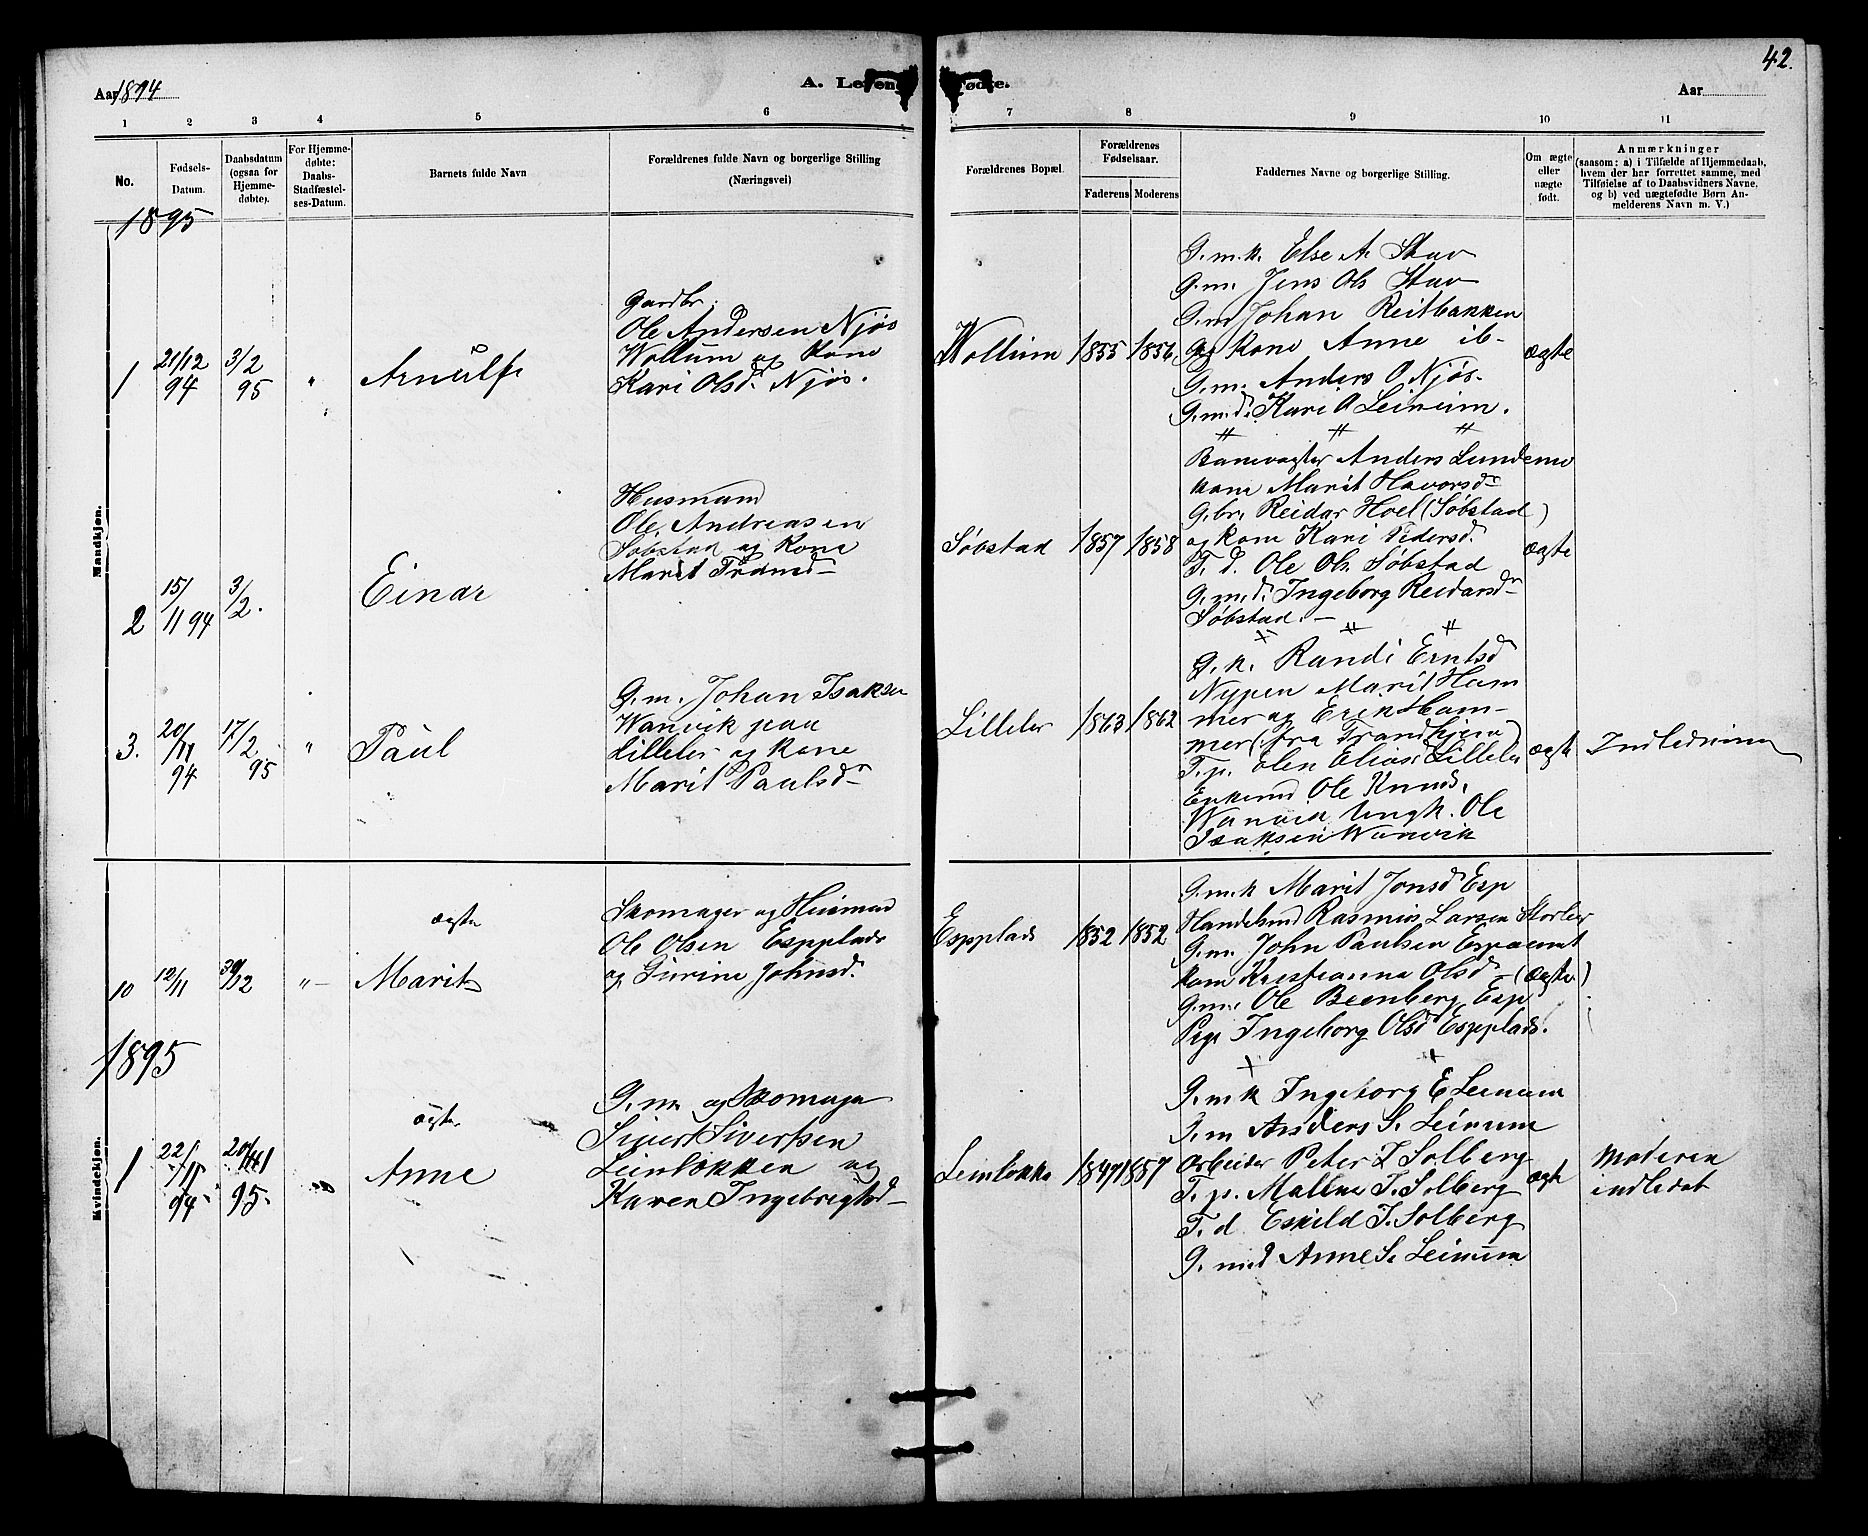 42.
Aar 1894
A. Leven
fødte.
Aar
1 2 3 4 5 6 7 8 9 10 11
No.
Fødsels-
Datum.
Daabsdatum
(ogsaa for
Hjemme-
døbte).
For Hjemme-
døbte:
Daabs-
Stadfæstel-
ses-Datum.
Barnets fulde Navn
Forældrenes fulde Navn og borgerlige Stilling
(Næringsvei)
Forældrenes Bopæl.
Forældrenes
Fødselsaar.
Faderens Moderens
Faddernes Navne og borgerlige Stilling.
Om ægte
eller
uægte
født.
Anmærkninger
(saasom: a) i Tilfælde af Hjemmedaab,
hvem der har forrettet samme, med
Tilføielse af to Daabsvidners Navne,
og b) ved uægtefødte Børn An-
melderens Navn m. V.)
1895
Mandkjøn.
1
21/12
94
3/2
95
"
Arnulf
Gardbr.
Ole Andersen Njøs
Wollum og Kone
Kari Olsd. Njøs.
Wollum
1855 1856
G.m.k. Else A. Stav
G.m. Jens Ols Stav
G.m. Johan Reitbakken
og Kone Anne ib-
G.m. Anders O Njøs.
G.m.d. Kari O Leinum.
ægte
2
15/
11 94
3/2.
Einar
Husmand
Ole Andreasen
Søbstad og Kone
Marit
Søbstad
1857 1858
Banevogter Anders Lundemo
kone Marit Havorsd
G.br. Reidar Hoel (Søbstad)
og kone Kari Pedersd.
T. d. Ole Ols. Søbstad
G.m.d. Ingeborg Reidarsd
Søbstad. -
ægte
3.
20/
11
94
17/2
95
"
Paul
G.m. Johan Isaksen
Wanvik paa
Lilleler og kone
Marit Paulsd
Lilleler
1863 1862
G.k. Randi Erntsd
Nypen Marit Ham
mer og Erik Ham-
mer (fra Trondhjem)
T.p. Olen Eliasd Lilleler
Enkemd Ole Knuds.
Wanvik Ungk. Ole
Isaksen Wanvik
ægte
Indledning
10
12/11
30/12
" -
ægte
Marit
Skomager og Husmand
Ole Olsen Espplads
og Gurine Johnsd.
Espplads
1852 1852
G.m.k Marit Jonsd Esp
Handelsmd Rasmus Larsen Storler
G.m. John Paulsen Esp samt
kone Kristianna Olsd -
(ægte)
G.m. Ole Beenberg Esp
Pige Ingeborg Olsd Espplads.
1895
Kvindekjøn.
1
22/
11
94.
20/1
95.
"
ægte
Anne
G.m. og Skomager
Sivert Sivertsen
Leinløkken og
Karen Ingebrigtsd -
Leinløkke
1847 1857
G.m.k Ingeborg E Leinum
G.m Anders S. Leinum
Arbeider Peter J Solberg
T.p. Maline J. Solberg
T. d Eskild J. Solberg
G. md Anne S. Leinum
ægte
Moderen
indledet